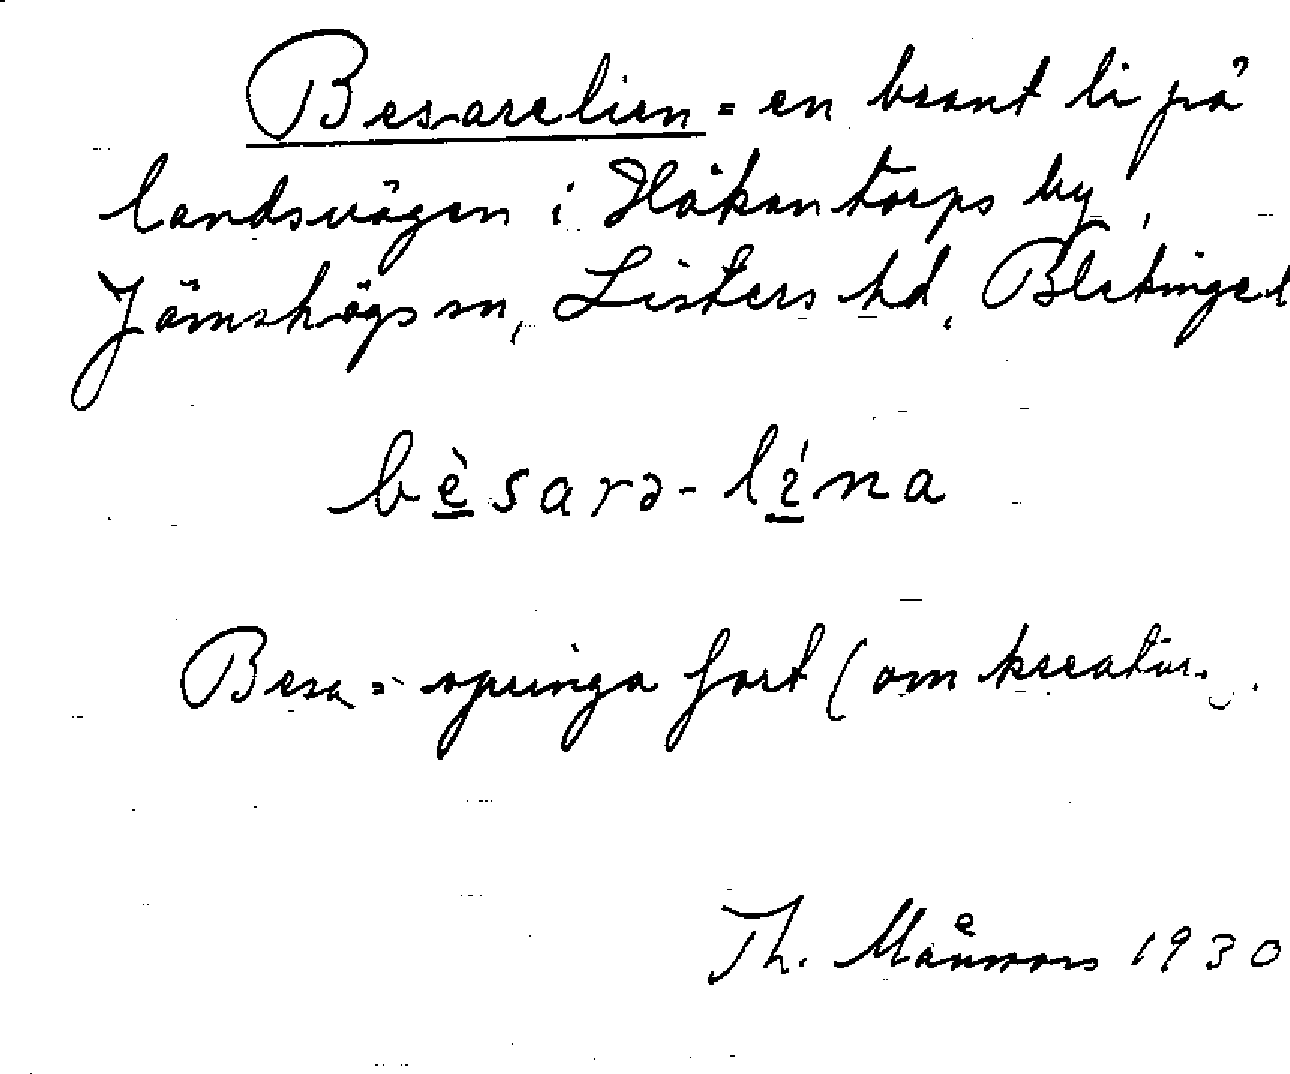 Besarelien = en brant li på
landsvägen i Håkantorps by,
Jämshögs sn, Listers hd, Blekinge l
bèsarə-lína
Besa = springa fort (om kreatur.
Th. Månsson 1930